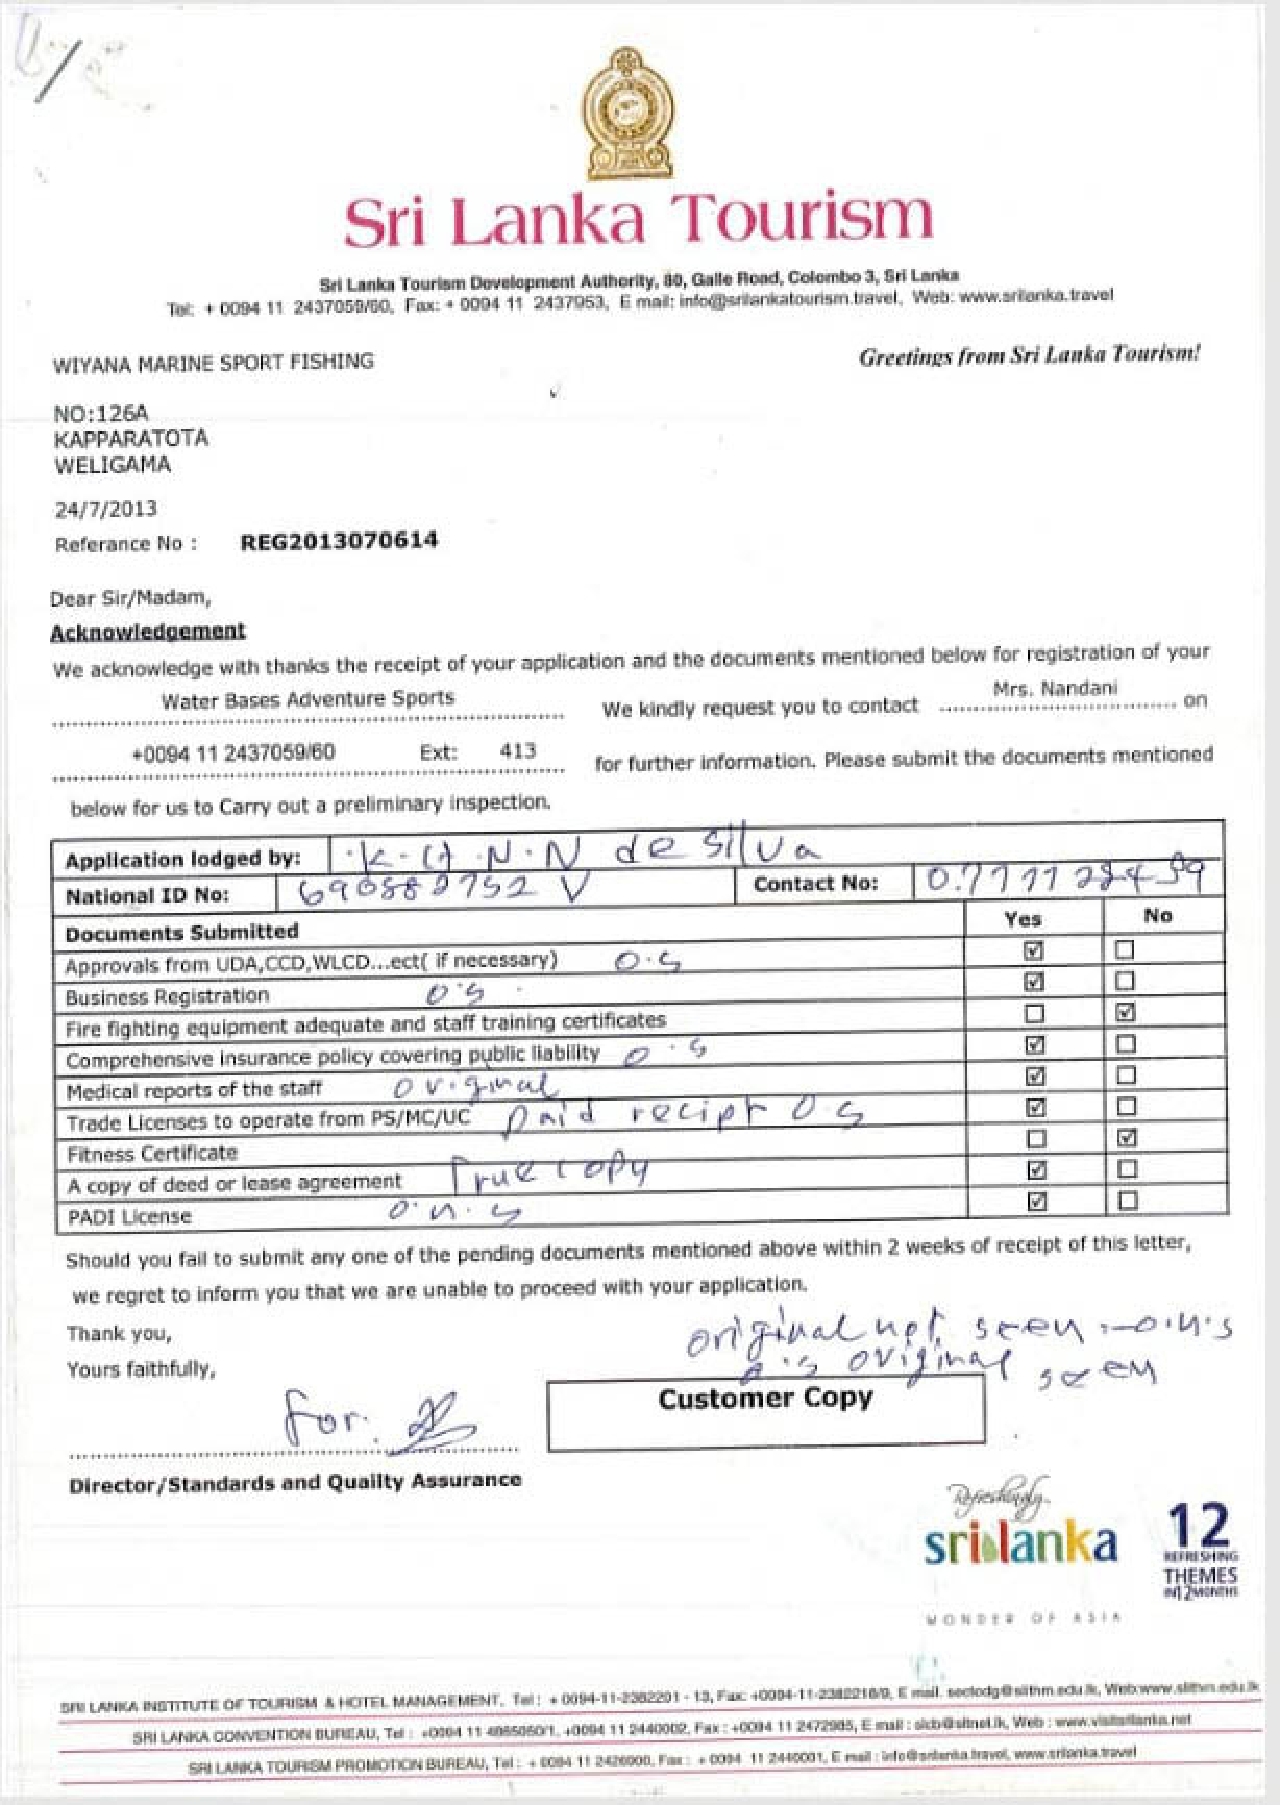 Sri Lanka Tourism
Sri Lanka Tourism Development Authority, 80, Galle Road, Colombo 3, Sri Lanka
Tel: + 0094 11 2437059/60, Fax: + 0094 11 2437953, E mail: info@srilankatourism.travel, Web: www.srilanka.travel
WIYANA MARINE SPORT FISHING
Greetings from Sri Lanka Tourism!
NO:126A
KAPPARATOTA
WELIGAMA
24/7/2013
Referance No : REG2013070614
Dear Sir/Madam,
Acknowledgement
We acknowledge with thanks the receipt of your application and the documents mentioned below for registration of your
Water Bases Adventure Sports We kindly request you to contact Mrs. Nandani on
+0094 11 2437059/60 Ext: 413 for further information. Please submit the documents mentioned
below for us to Carry out a preliminary inspection.
Application lodged by: N.N de Silva
National ID No: Contact No:
Documents Submitted Yes No
Approvals from UDA,CCD,WLCD...ect( if necessary) o.s
Business Registration o.s
Fire fighting equipment adequate and staff training certificates
Comprehensive insurance policy covering public liability o.s
Medical reports of the staff original
Trade Licenses to operate from PS/MC/UC paid recipt o.s
Fitness Certificate
A copy of deed or lease agreement True copy
PADI License o.n.s
Should you fail to submit any one of the pending documents mentioned above within 2 weeks of receipt of this letter,
we regret to inform you that we are unable to proceed with your application.
Thank you,
original not seen :- o.n.s
Yours faithfully,
o.s original seen
for:
Customer Copy
Director/Standards and Quailty Assurance
Refreshingly
sri lanka
WONDER OF ASIA
12
REFRESHING
THEMES
IN 12 MONTHS
SRI LANKA INSTITUTE OF TOURISM & HOTEL MANAGEMENT, Tel : + 0094-11-2382201 - 13, Fax: E mail. Web:www.slithm.edu.lk
SRI LANKA CONVENTION BUREAU, Tel : +0094 11 2440002, Fax : +0094 11 2472985, E mail : slcb@sltnet.lk, Web :
SRI LANKA TOURISM PROMOTION BUREAU, Tel : Fax : E mail : info@srilanka.travel, www.srilanka.travel